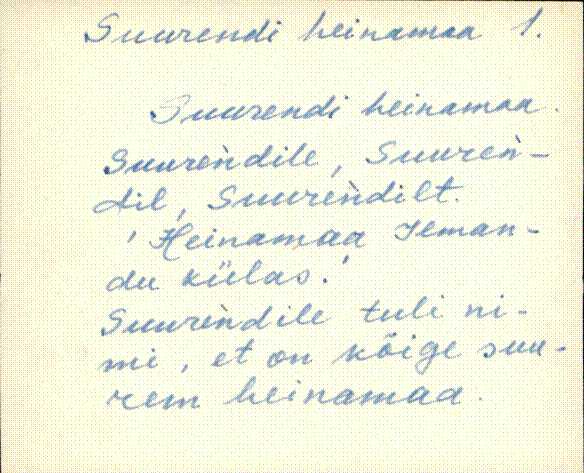 Suurendi heinamaa 1.
Suurendi heinamaa.
Suureǹdile, Suureǹ-
dil, Suureǹdilt.
'Heinamaa Ileman-
du külas.'
Suureǹdile tuli ni-
mi, et on kõige suu-
rem heinamaa.